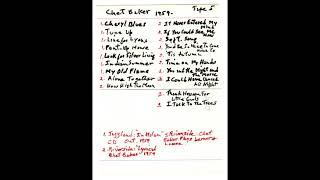 Chet Baker 1959. Tape 5
1 Cheryl Blues
1 Tune Up
1 Line for Lyons
1 Pent-Up House
1 Look for Silver Lining
1 Indian Summer
1 My Old Flame
2 Alone Together
2 How High The Moon
2 It Never Entered My Mind
2 If You Could See Me Now
2 Sept. Song
2 You'd Be So Nice To Come
2 'Tis Autumn
2 Time on My Hands
2 You and the Night and the Music
2 I Could Have Danced All Night
2 Thank Heaven For Little Girls
2 I Talk To The Trees
1 Jazzland: In Milan
CD Oct. 1959
2 Riverside:
Chet Baker 1959
Riverside Chet
Baker Plays Lerner &
Loewe